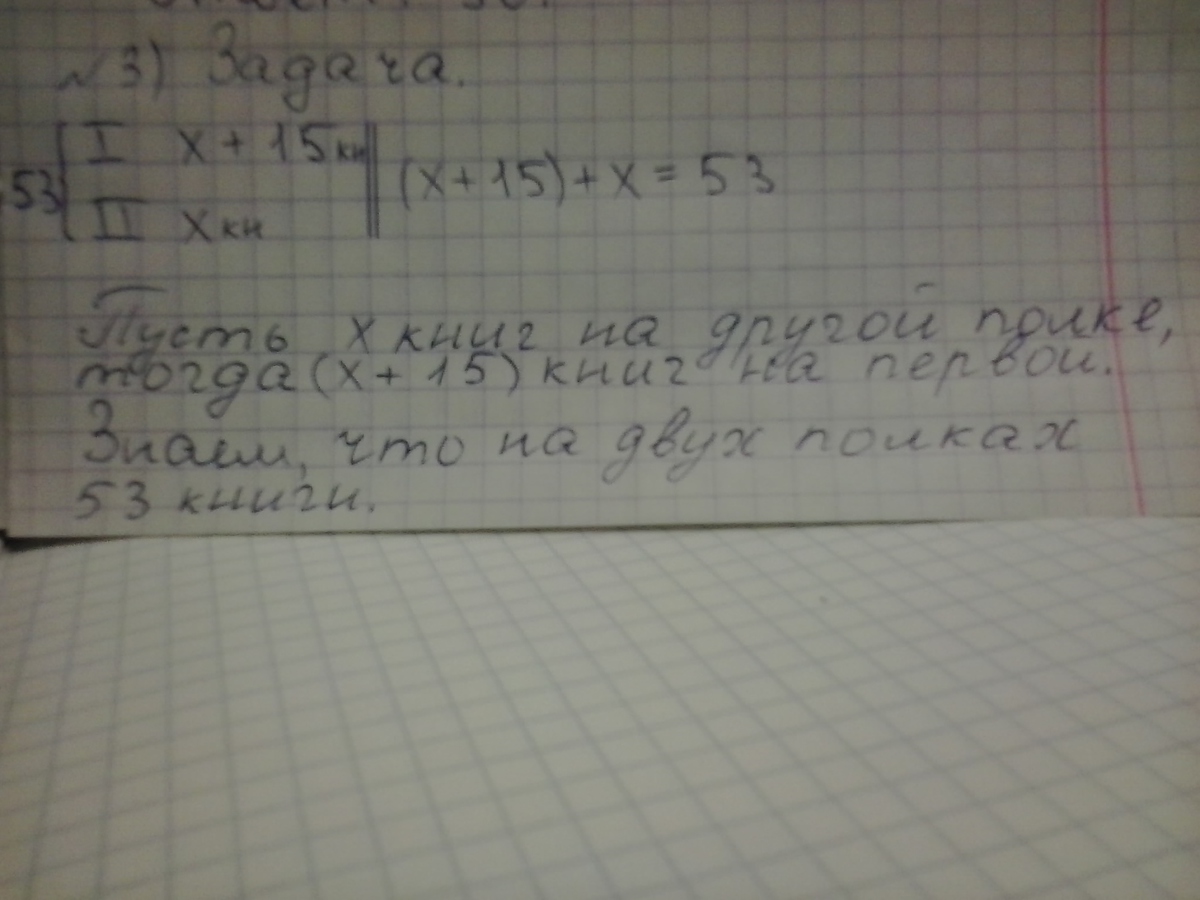 №3) Задача.
I х + 15 кн
53
(х + 15) + х = 53
II х кн
Пусть х книг на другой полке,
тогда (х + 15) книг на первой.
Знаем, что на двух полках
53 книги.